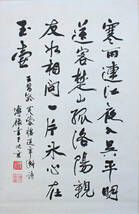 寒雨連江夜入吳平明
送客楚山孤洛陽親
友如相問一片冰心在
玉壺
王昌齡芙蓉樓送辛漸詩